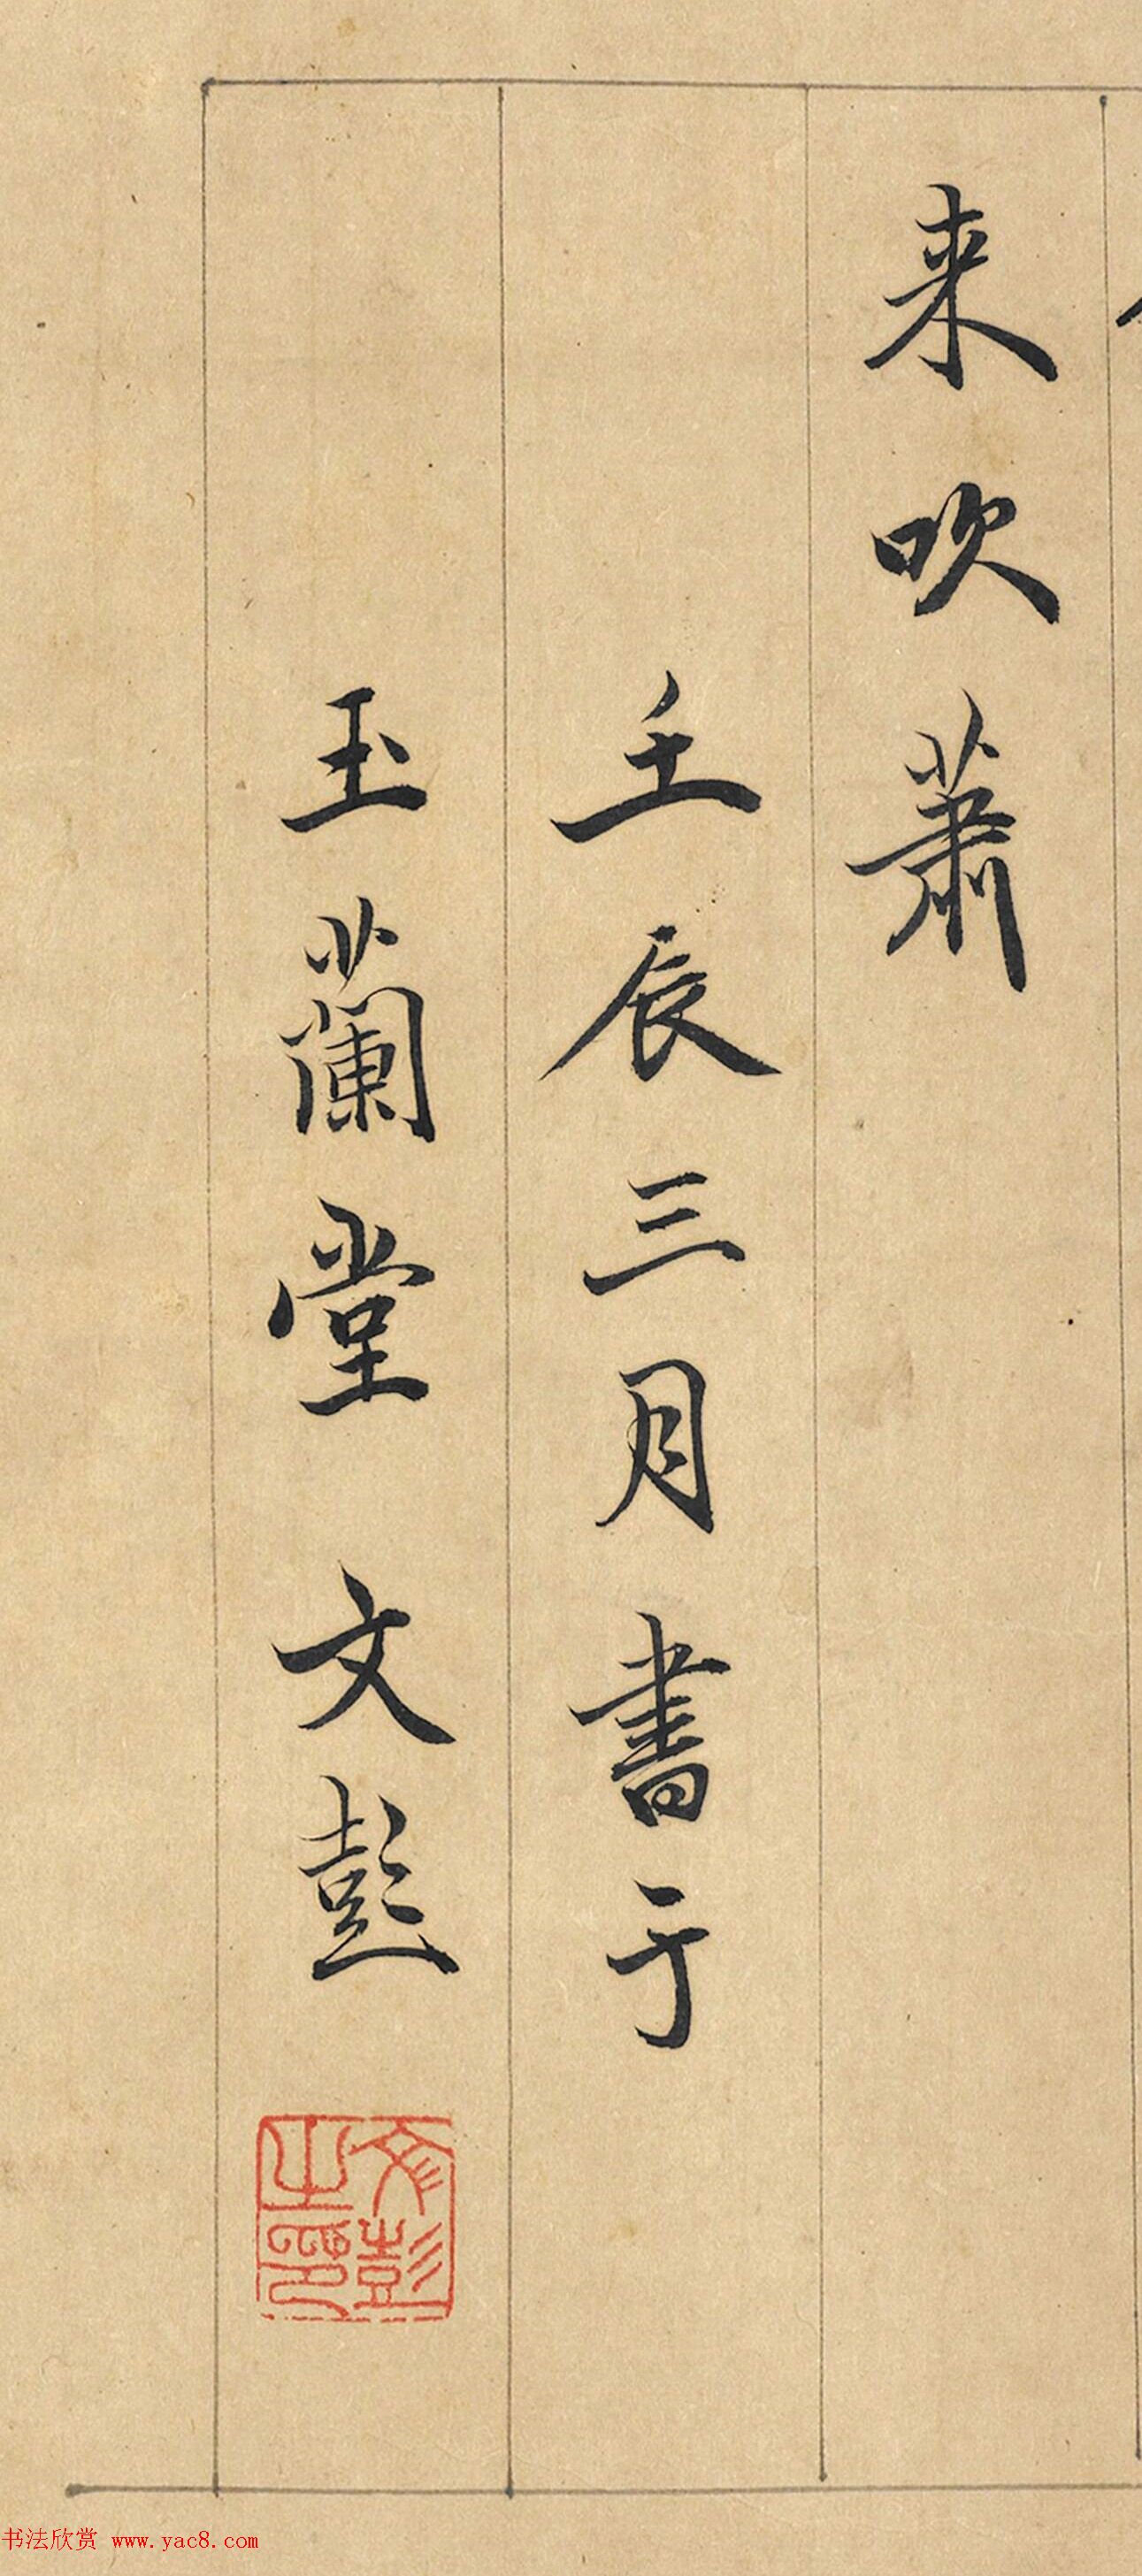 来吹蕭
壬辰三月書于
玉蘭堂 文彭
文彭之印
书法欣赏 www.yac8.com